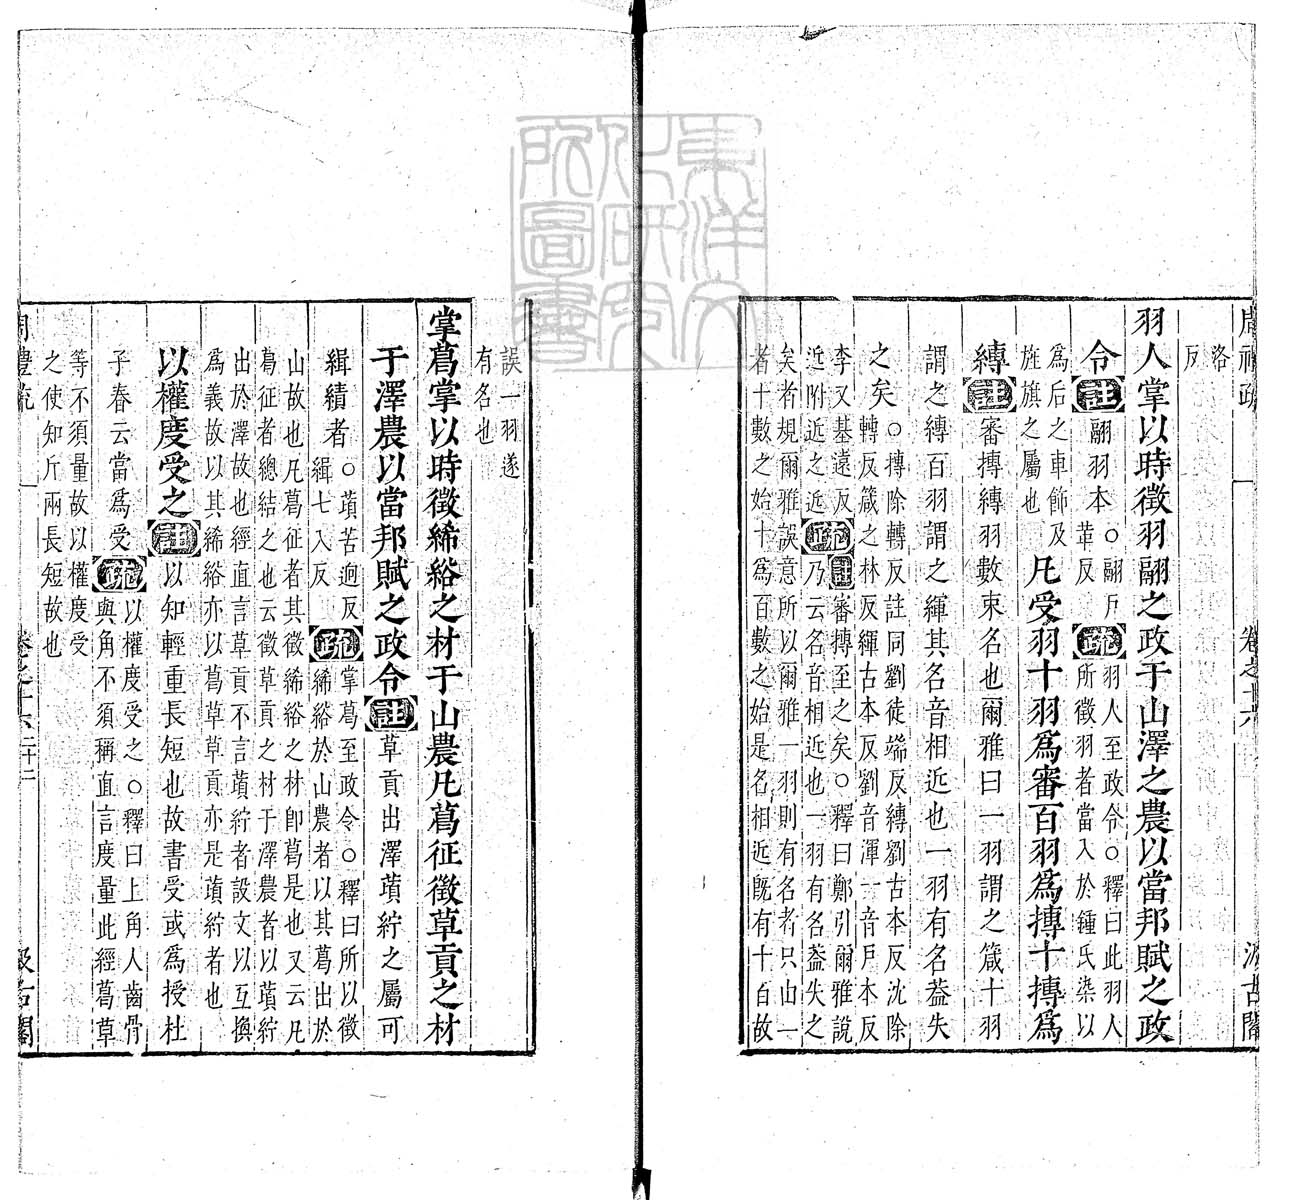 東洋文
化研究
所圖書
周禮疏 卷之十六 汲古閣
咯
反
羽人掌以時徵羽翮之政于山澤之農以當邦賦之政
令註翮羽本○翮戶革反疏羽人至政令○釋曰此羽人所徵羽者當入於鍾氏染以
為后之車飾及旌旗之屬也凡受羽十羽為審百羽為摶十摶為
縳註審摶縳羽數束名也爾雅曰一羽謂之箴十羽
謂之縳百羽謂之緷其名音相近也一羽有名葢失
之矣○摶除轉反註同劉徒端反縳劉古本反沈除轉反箴之林反緷古本反劉音渾一音戶本反
李又基遠反近附近之近疏註審摶至之矣○釋曰鄭引爾雅說乃云名音相近也一羽有名葢失之
矣者規爾雅誤意所以爾雅一羽則有名者只由一
者十數之始十為百數之始是名相近旣有十百故
誤一羽遂
有名也
掌葛掌以時徵絺綌之材于山農凡葛征徵草貢之材
于澤農以當邦賦之政令註草貢出澤䔛紵之屬可
緝績者○䔛苦迥反緝七入反疏掌葛至政令○釋曰所以徵絺綌於山農者以其葛出於
山故也凡葛征者其徵絺綌之材卽葛是也又云凡
葛征者總結之也云徵草貢之材于澤農者以䔛紵
出於澤故也經直言草貢不言䔛紵者設文以互換
為義故以其絺綌亦以葛草草貢亦是䔛紵者也
以權度受之註以知輕重長短也故書受或為授杜
子春云當為受疏以權度受之○釋曰上角人齒骨與角不須稱直言度量此經葛草
等不須量故以權度受
之使知斤兩長短故也
周禮疏 卷之十六 二十二 汲古閣